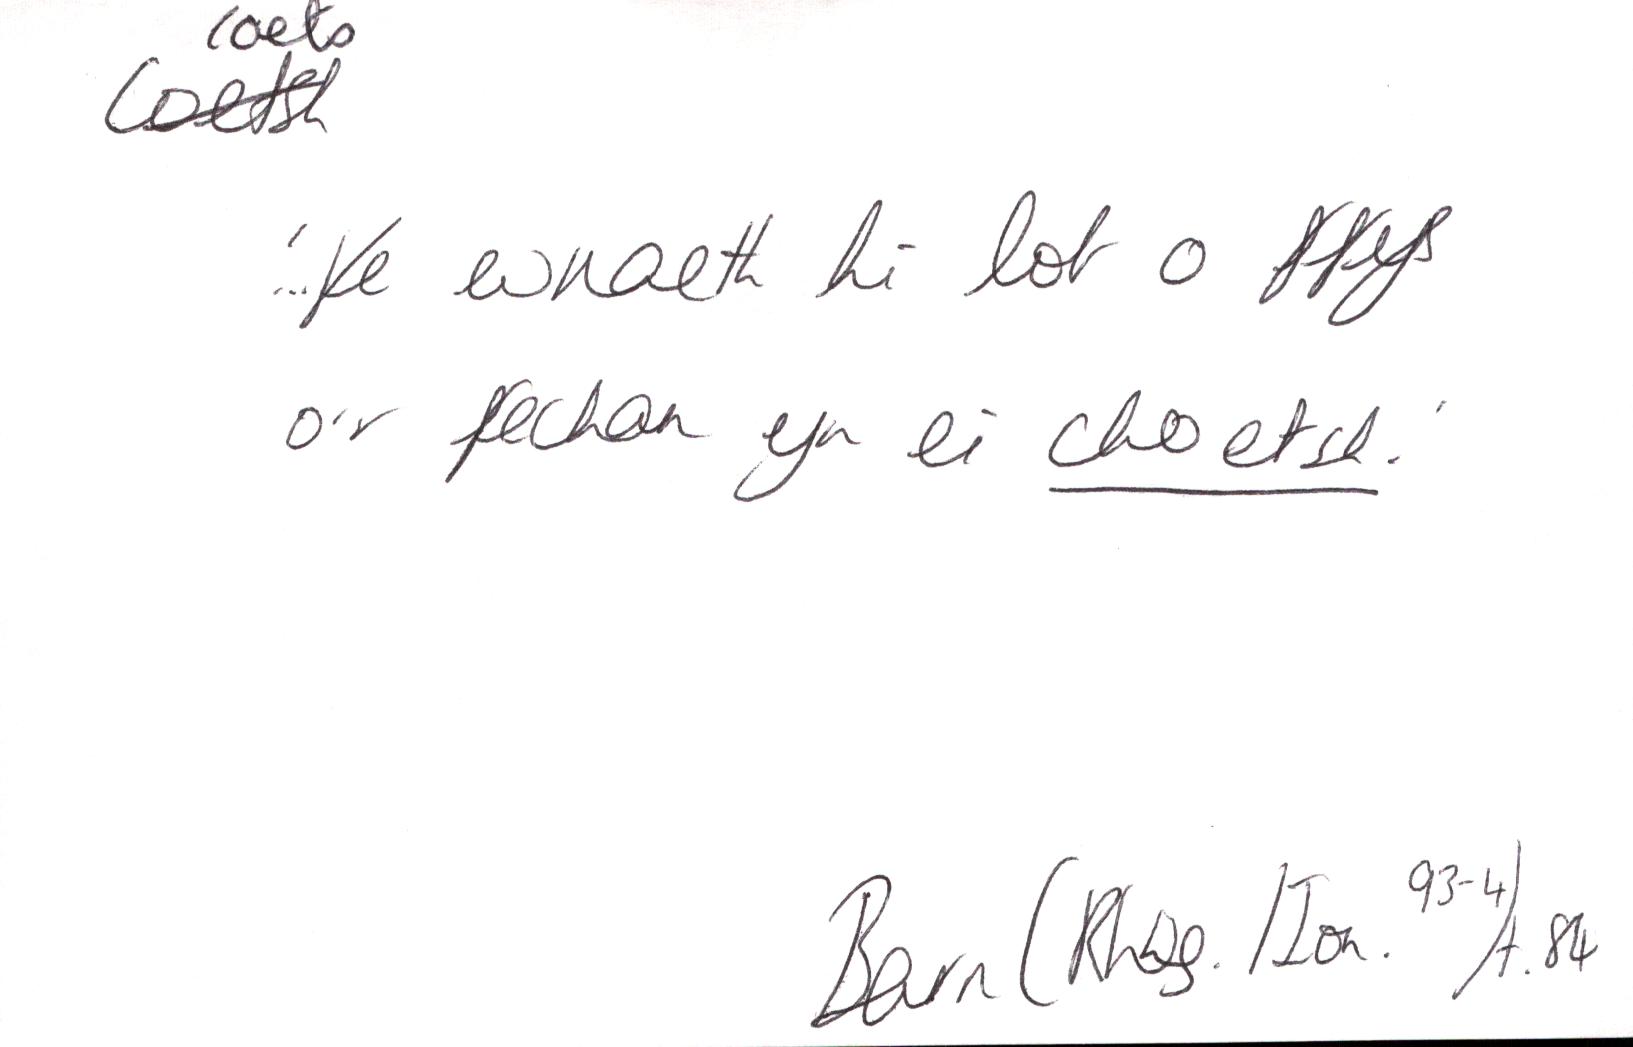 coets
Coetsh
'...Fe wnaeth hi lot o ffys
o'r fechan yn ei choetsh.'
Barn (Rhag./Ion. 93-4) t.84